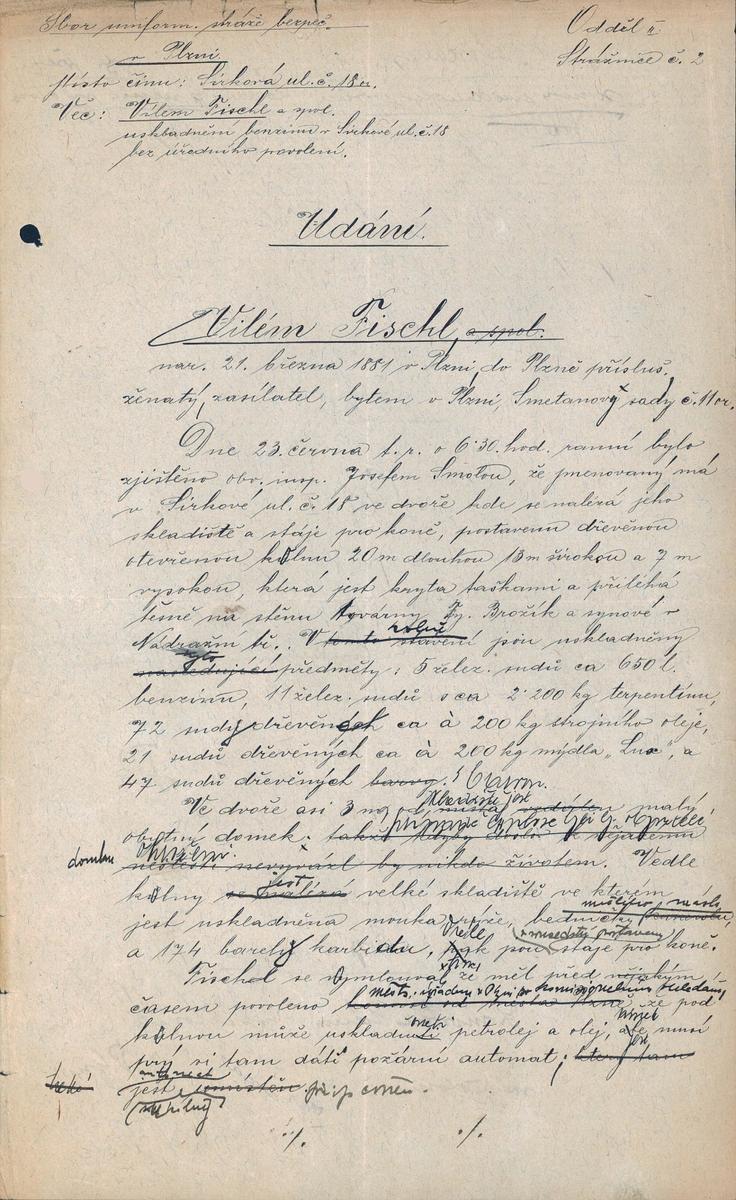 Sbor uniform. stráže bezpeč.
v Plzni.
Odděl II
Strážnice č. 2
Místo činu: Sirková ul. č. 18 or.
Věc: Vilém Fischl a spol.
uskladnění benzinu v Sirkové ul. č. 18
bez úředního povolení.
Udání.
Vilém Fischl, a spol.
nar. 21. března 1881 v Plzni, do Plzně přísluš.
ženatý, zasílatel, bytem v Plzni, Smetanovy sady č. 11 or.
Dne 23. června t. r. o 6·30. hod. ranní bylo
zjištěno obv. insp. Josefem Smolou, že jmenovaný má
v Sirkové ul. č. 18 ve dvoře kde se nalézá jeho
skladiště a stáje pro koně, postavenu dřevěnou
otevřenou kolnu 20 m dlouhou 13 m širokou a 7 m
vysokou, která jest kryta taškami a přiléhá
těsně na stěnu továrny Fy. Brožík a synové v
Nádražní tř.. V tomto kolně stavení jsou uskladněny
tyto následující předměty: 5 želez. sudů ca 650 l.
benzinu, 11 želez. sudů s ca 2·200 kg terpentinu,
72 sudy dřevěných ca à 200 kg strojního oleje,
21 sudů dřevěných ca à 200 kg mýdla „Lux“, a
47 sudů dřevěných barvy. s barvou.
Ve dvoře asi 3 m od skladiště jest malý
obytný domek.
domku ohrožení. neštěstí nevyvázl by nikdo životem. Vedle
kolny se nalézá jest velké skladiště ve kterém
jest uskladněna mouka, rýže, bedničky
a 174 barely karbidu. Vedle pak jsou stáje pro koně.
Fischl se vymlouval, že měl před nějakým
časem povoleno že pod
kolnou může uskladniti petrolej a olej, musí
prý si tam dáti požární automat, který tam
jest umístěn.
·/. ·/.